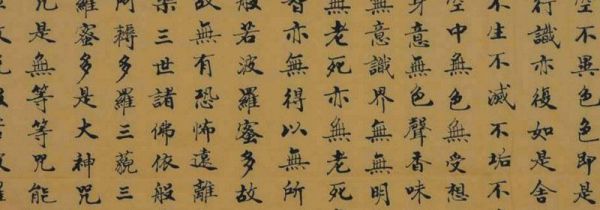 空不異色色即是
行識亦復如是舍
不生不滅不垢不
空中無色無受想
身意無色聲香味
無意識界無無明
無老死亦無老死
智亦無得以無所
般若波羅蜜多故
故無有恐怖遠離
槃三世諸佛依般
阿耨多羅三藐三
羅蜜多是大神咒
咒是無等等咒能